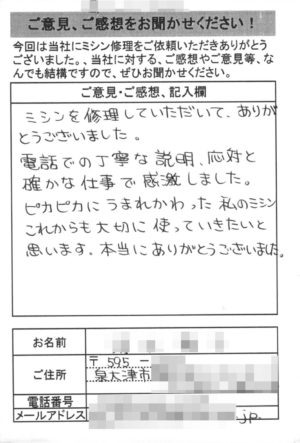 ご意見、ご感想をお聞かせください！
今回は当社にミシン修理をご依頼いただきありがとう
ございました。、当社に対する、ご感想やご意見等、な
んでも結構ですので、ぜひお聞かせください。
ご意見・ご感想、記入欄
ミシンを修理していただいて、ありが
とうございました。
電話での丁寧な説明、応対と
確かな仕事で感激しました。
ピカピカにうまれかわった私のミシン
これからも大切に使っていきたいと
思います。本当にありがとうございました。
お名前
ご住所
〒595-
泉大津市
電話番号
メールアドレス
.jp